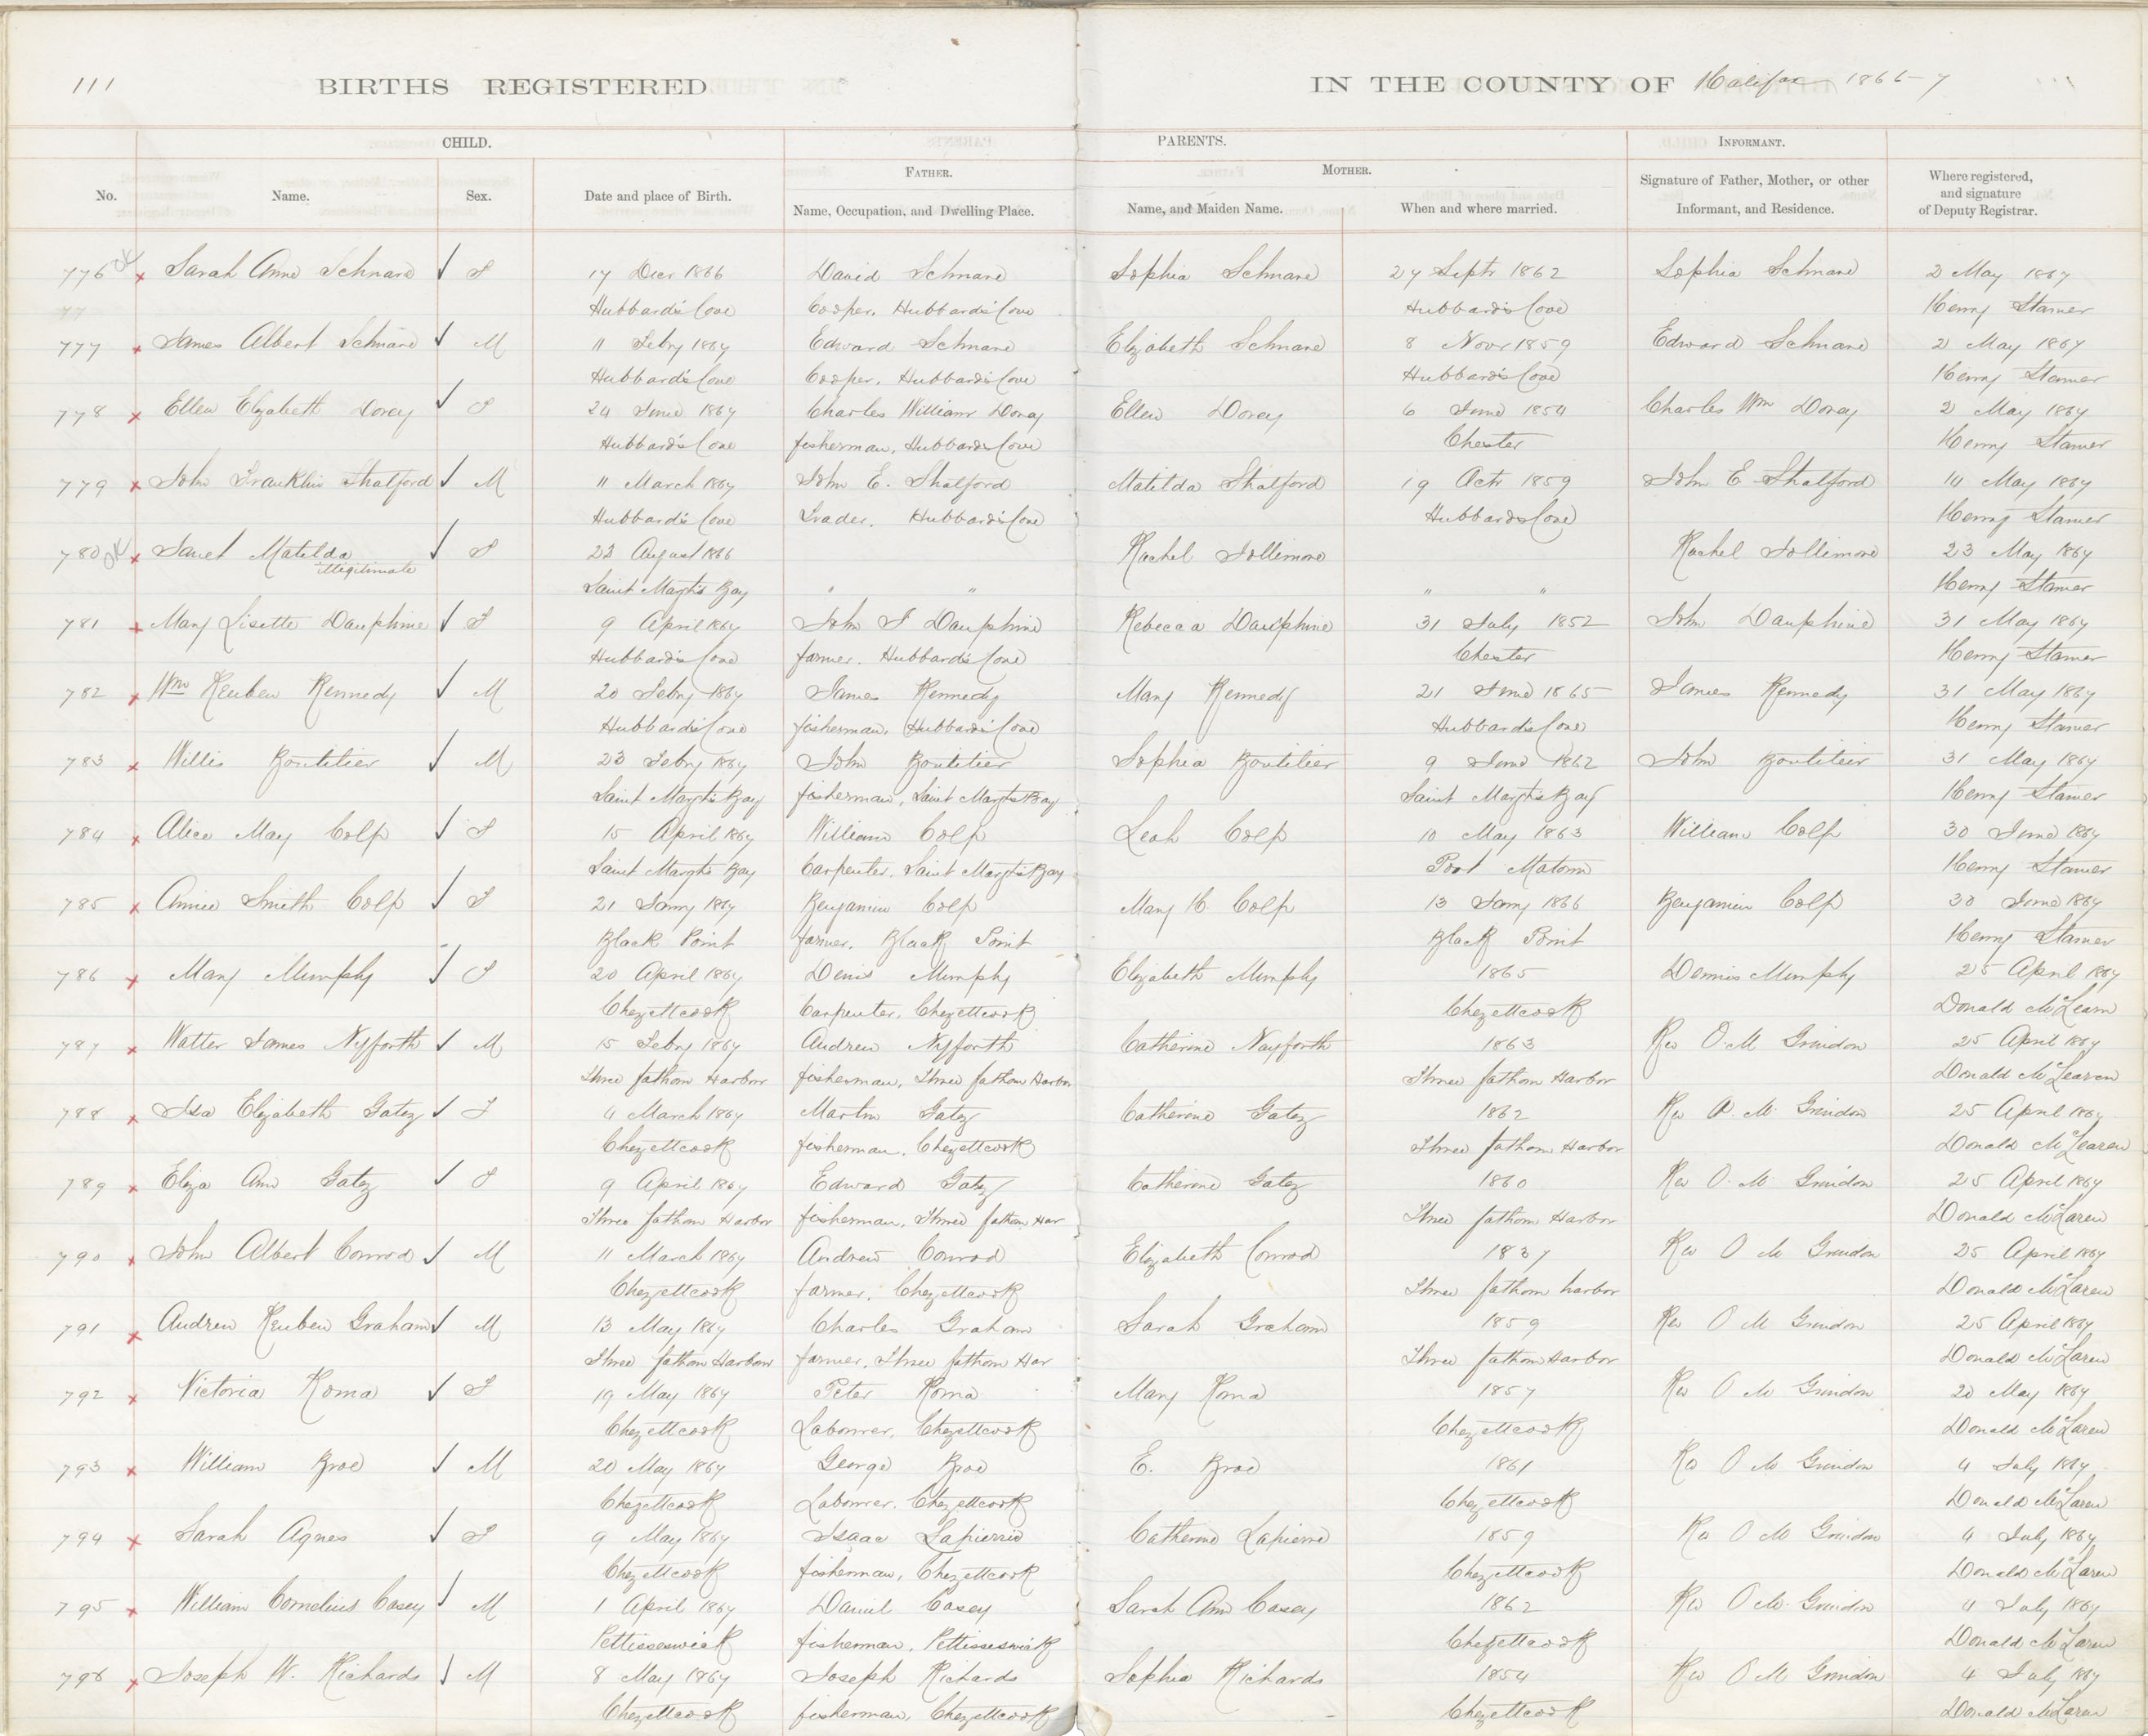 111 BIRTHS REGISTERED IN THE COUNTY OF Halifax 1866-7
CHILD. PARENTS. INFORMANT.
FATHER. MOTHER.
No. Name. Sex. Date and place of Birth. Name, Occupation, and Dwelling Place. Name, and Maiden Name. When and where married. Signature of Father, Mother, or other Informant, and Residence. Where registered, and signature of Deputy Registrar.
776 OK x Sarah Anne Schnare ✓ F 17 Decr 1866 David Schnare Sophia Schnare 27 Septr 1862 Sophia Schnare 2 May 1867
Hubbard's Cove Cooper. Hubbard's Cove Hubbard's Cove Henry Stamer
777 x James Albert Schnare ✓ M 11 Febry 1867 Edward Schnare Elizabeth Schnare 8 Novr 1859 Edward Schnare 2 May 1867
Hubbard's Cove Cooper. Hubbard's Cove Hubbard's Cove Henry Stamer
778 x Ellen Elizabeth Dorey ✓ F 24 June 1867 Charles William Dorey Ellen Dorey 6 June 1854 Charles Wm Dorey 2 May 1867
Hubbard's Cove fisherman, Hubbards Cove Chester Henry Stamer
779 x John Franklin Shatford ✓ M 11 March 1867 John E. Shatford Matilda Shatford 19 Octr 1859 John E Shatford 14 May 1867
Hubbard's Cove Trader. Hubbard's Cove Hubbards Cove Henry Stamer
780 OK x Janet Matilda ✓ F 23 August 1866 Rachel Jollimore Rachel Jollimore 23 May 1867
Illegitimate
Saint Margts Bay " " " " Henry Stamer
781 x Mary Lisette Dauphine ✓ F 9 April 1867 John J Dauphine Rebecca Dauphine 31 July 1852 John Dauphine 31 May 1867
Hubbard's Cove farmer. Hubbard's Cove Chester Henry Stamer
782 x Wm Reuben Kennedy ✓ M 20 Febry 1867 James Kennedy Mary Kennedy 21 June 1865 James Kennedy 31 May 1867
Hubbard's Cove fisherman, Hubbard's Cove Hubbard's Cove Henry Stamer
783 x Willis Boutilier ✓ M 23 Febry 1867 John Boutilier Sophia Boutilier 9 June 1862 John Boutilier 31 May 1867
Saint Margts Bay fisherman, Saint Margts Bay Saint Margts Bay Henry Stamer
784 x Alice May Colp ✓ F 15 April 1867 William Colp Leah Colp 10 May 1863 William Colp 30 June 1867
Saint Margts Bay Carpenter. Saint Margts Bay Port Matoon Henry Stamer
785 x Annie Smith Colp ✓ F 21 Jany 1867 Benjamin Colp Mary H. Colp 13 Jany 1866 Benjamin Colp 30 June 1867
Black Point farmer. Black Point Black Point Henry Stamer
786 x Mary Murphy ✓ F 20 April 1867 Denis Murphy Elizabeth Murphy 1865 Dennis Murphy 25 April 1867
Chezettcook Carpenter. Chezettcook Chezettcook Donald McLearn
787 x Walter James Nyforth ✓ M 15 Febry 1867 Andrew Nyforth Catherine Nayforth 1863 Rev O. M Grindon 25 April 1867
Three fathom Harbor fisherman, Three fathom Harbor Three fathom Harbor Donald McLearen
788 x Isa Elizabeth Gatez ✓ F 4 March 1867 Martin Gatez Catherine Gatez 1862 Rev O. M. Grindon 25 April 1867
Chezettcook fisherman, Chezettcook Three fathom Harbor Donald McLearen
789 x Eliza Ann Gatez ✓ F 9 April 1867 Edward Gatez Catherine Gatez 1860 Rev O. M. Grindon 25 April 1867
Three fathom Harbor fisherman, Three fathom Har Three fathom Harbor Donald McLaren
790 x John Albert Conrod ✓ M 11 March 1867 Andrew Conrod Elizabeth Conrod 1837 Rev O M Grindon 25 April 1867
Chezettcook farmer, Chezettcook Three fathom harbor Donald McLaren
791 x Andrew Reuben Graham ✓ M 13 May 1867 Charles Graham Sarah Graham 1859 Rev O M Grindon 25 April 1867
Three fathom Harbour farmer, Three fathom Har Three fathom Harbor Donald McLaren
792 x Victoria Roma ✓ F 19 May 1867 Peter Roma Mary Roma 1857 Rev O M Grindon 20 May 1867
Chezettcook Labourer, Chezettcook Chezettcook Donald McLaren
793 x William Broe ✓ M 20 May 1867 George Broe E. Broe 1861 Rev O M Grindon 4 July 1867
Chezettcook Labourer. Chezettcook Chezettcook Donald McLaren
794 x Sarah Agnes ✓ F 9 May 1867 Isaac Lapierre Catherine Lapierre 1859 Rev O M Grindon 4 July 1867
Chezettcook fisherman, Chezettcook Chezettcook Donald McLaren
795 x William Cornelius Casey ✓ M 1 April 1867 Daniel Casey Sarah Ann Casey 1862 Rev O M. Grindon 4 July 1867
Pettisseswick fisherman, Pettisseswick Chezettcook Donald McLaren
796 x Joseph W. Richards ✓ M 8 May 1867 Joseph Richards Sophia Richards 1854 Rev O M Grindon 4 July 1867
Chezettcook fisherman, Chezettcook Chezettcook Donald McLaren